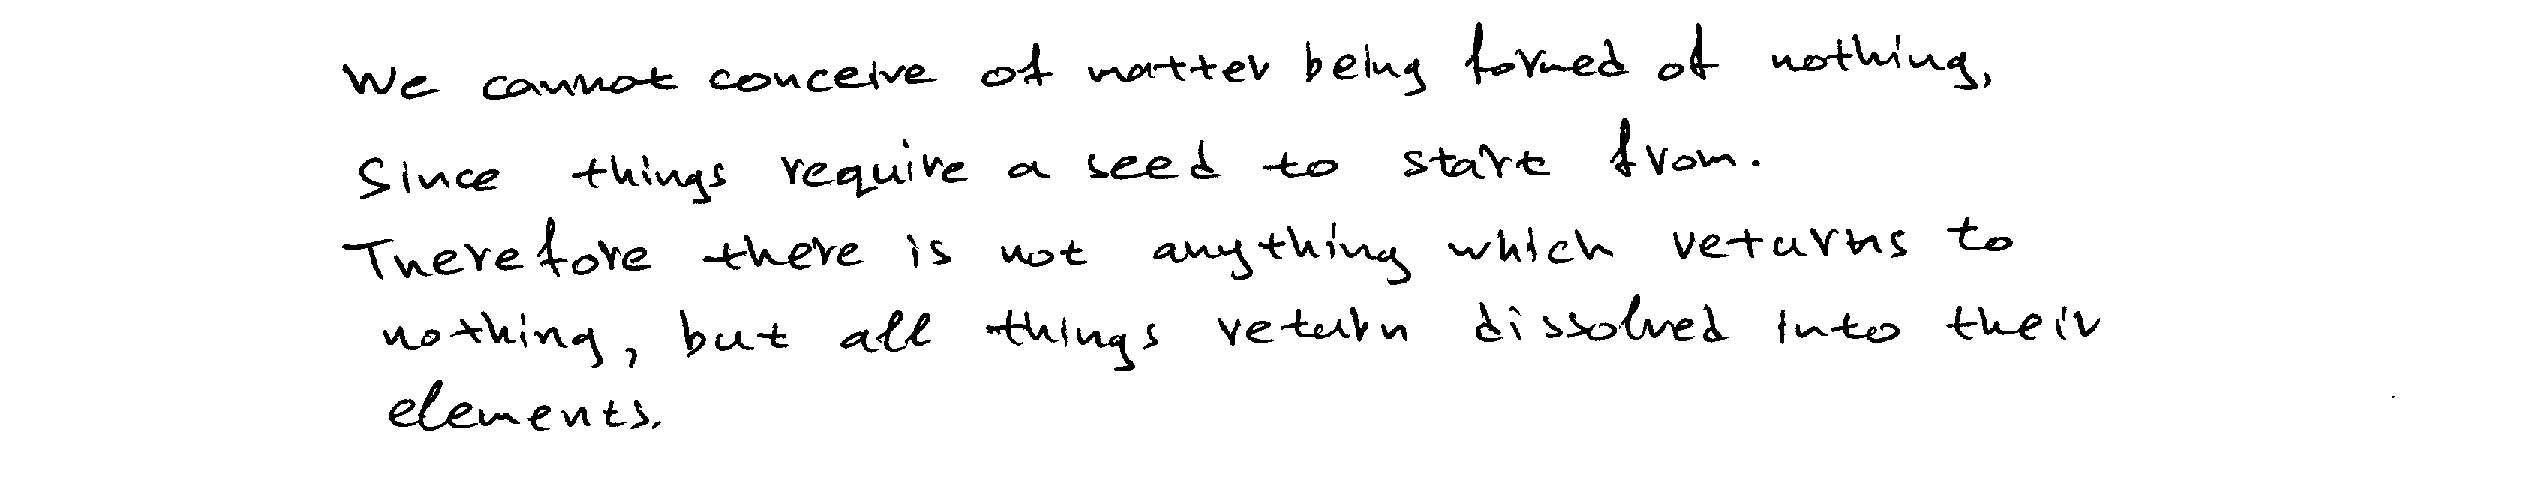 We cannot conceive of matter being formed of nothing,
Since things require a seed to start from.
Therefore there is not anything which returns to
nothing, but all things return dissolved into their
elements.